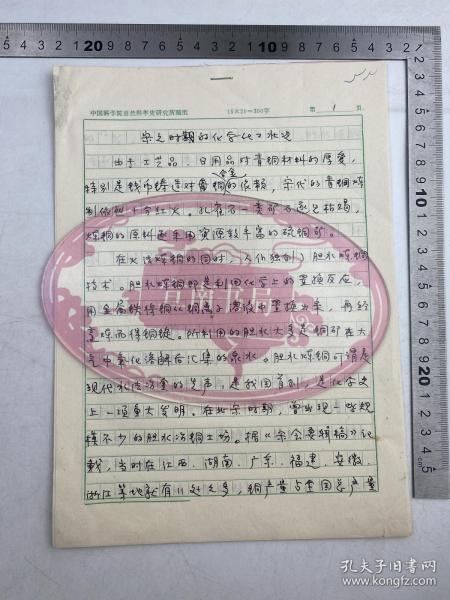 中国科学院自然科学史研究所稿纸 15×20=300字 第 1 页
宋元时期的化学化工状况
由于工艺品、日用品对青铜材料的厚爱，
特别是钱币铸造对青铜合金的依赖，宋代的青铜炼
制依然十分红火。孔雀石一类矿石逐见枯竭，
炼铜的原料遂采用资源较丰富的硫铜矿。
在火法炼铜的同时，人们独创了胆水炼铜
技术。胆水炼铜即是利用化学上的置换反应，
用金属铁将铜从铜离子溶液中置换出来，再经
烹炼而得铜锭。所利用的胆水大多是铜矿在大
气中氧化溶解后汇集的泉水。胆水炼铜可谓是
现代水法冶金的先声，是我国首创，是化学史
上一项重大发明。在北宋时期，曾出现一些规
模不少的胆水冶铜工场。据《宋会要辑稿》记
载，当时在江西、湖南、广东、福建、安徽、
浙江等地就有11处之多，铜产量占全国总产量
孔夫子旧书网
www.kongfz.com